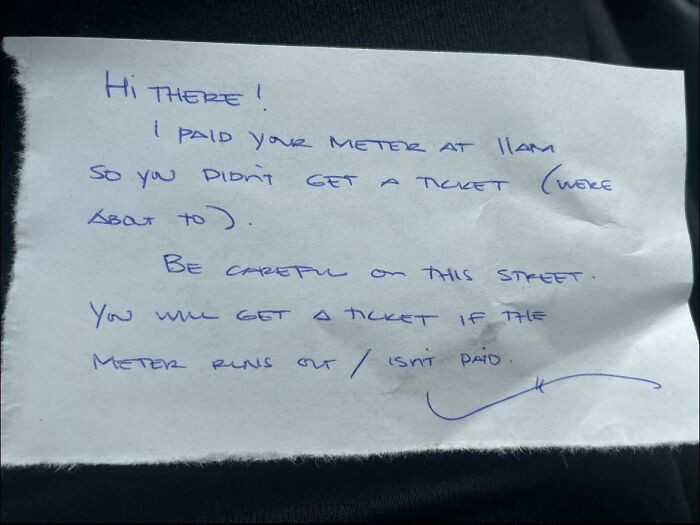 Hi THERE!
I PAID YOUR METER AT 11AM
SO YOU DIDN'T GET A TICKET (WERE
ABOUT TO).
BE CAREFUL ON THIS STREET.
YOU WILL GET A TICKET IF THE
METER RUNS OUT / ISN'T PAID.